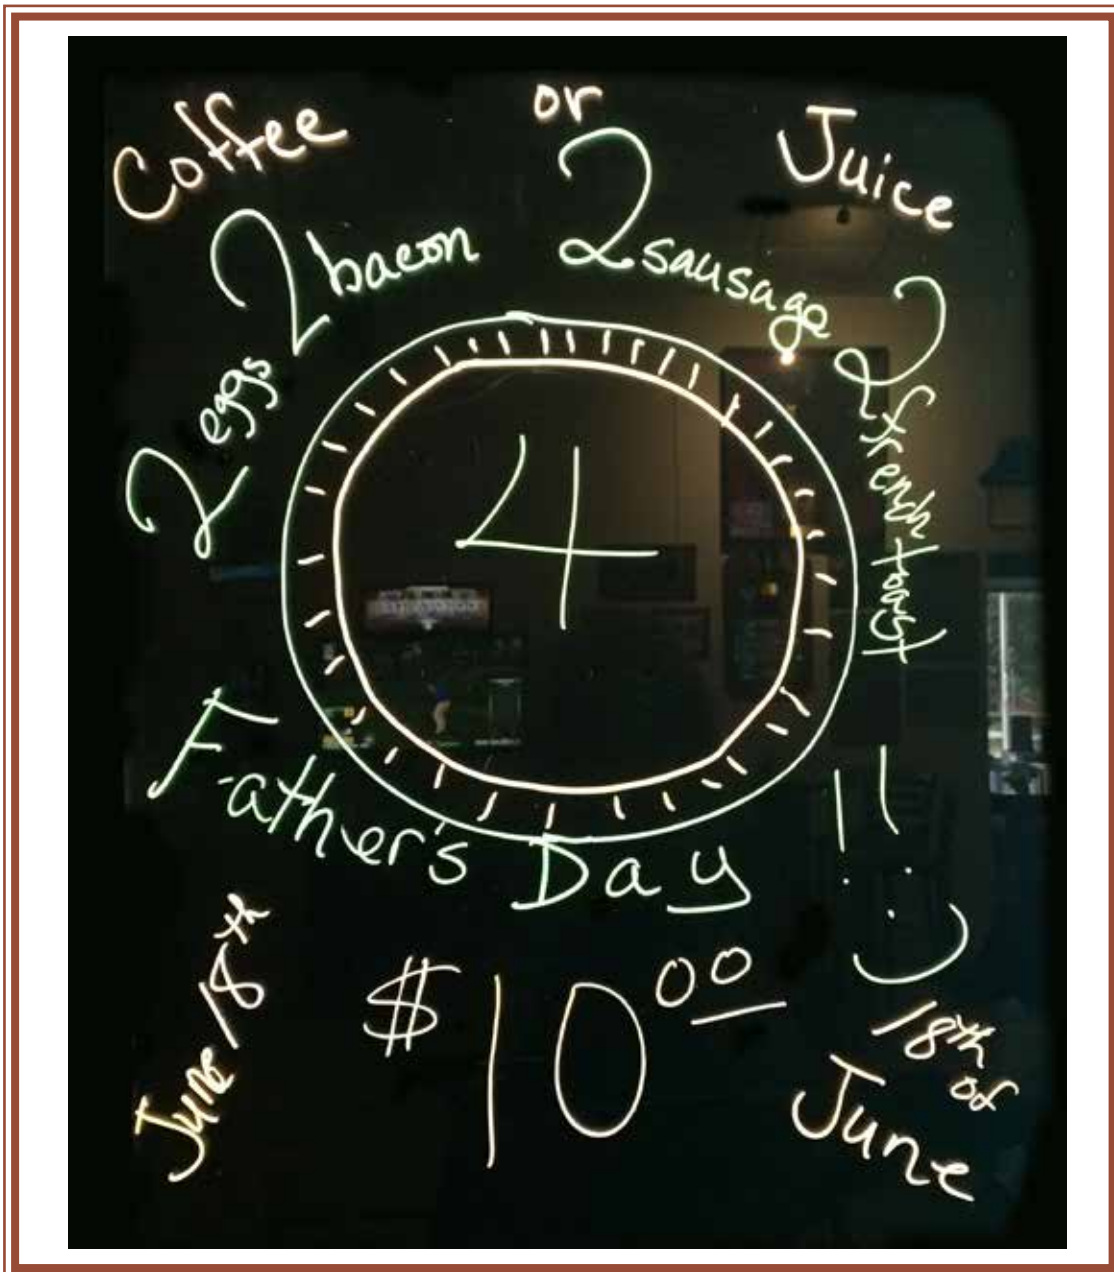 Coffee or Juice
2 eggs
2 bacon
2 sausage
2 french toast
4
Father's Day !!
June 18th
$10.00
18th of
June